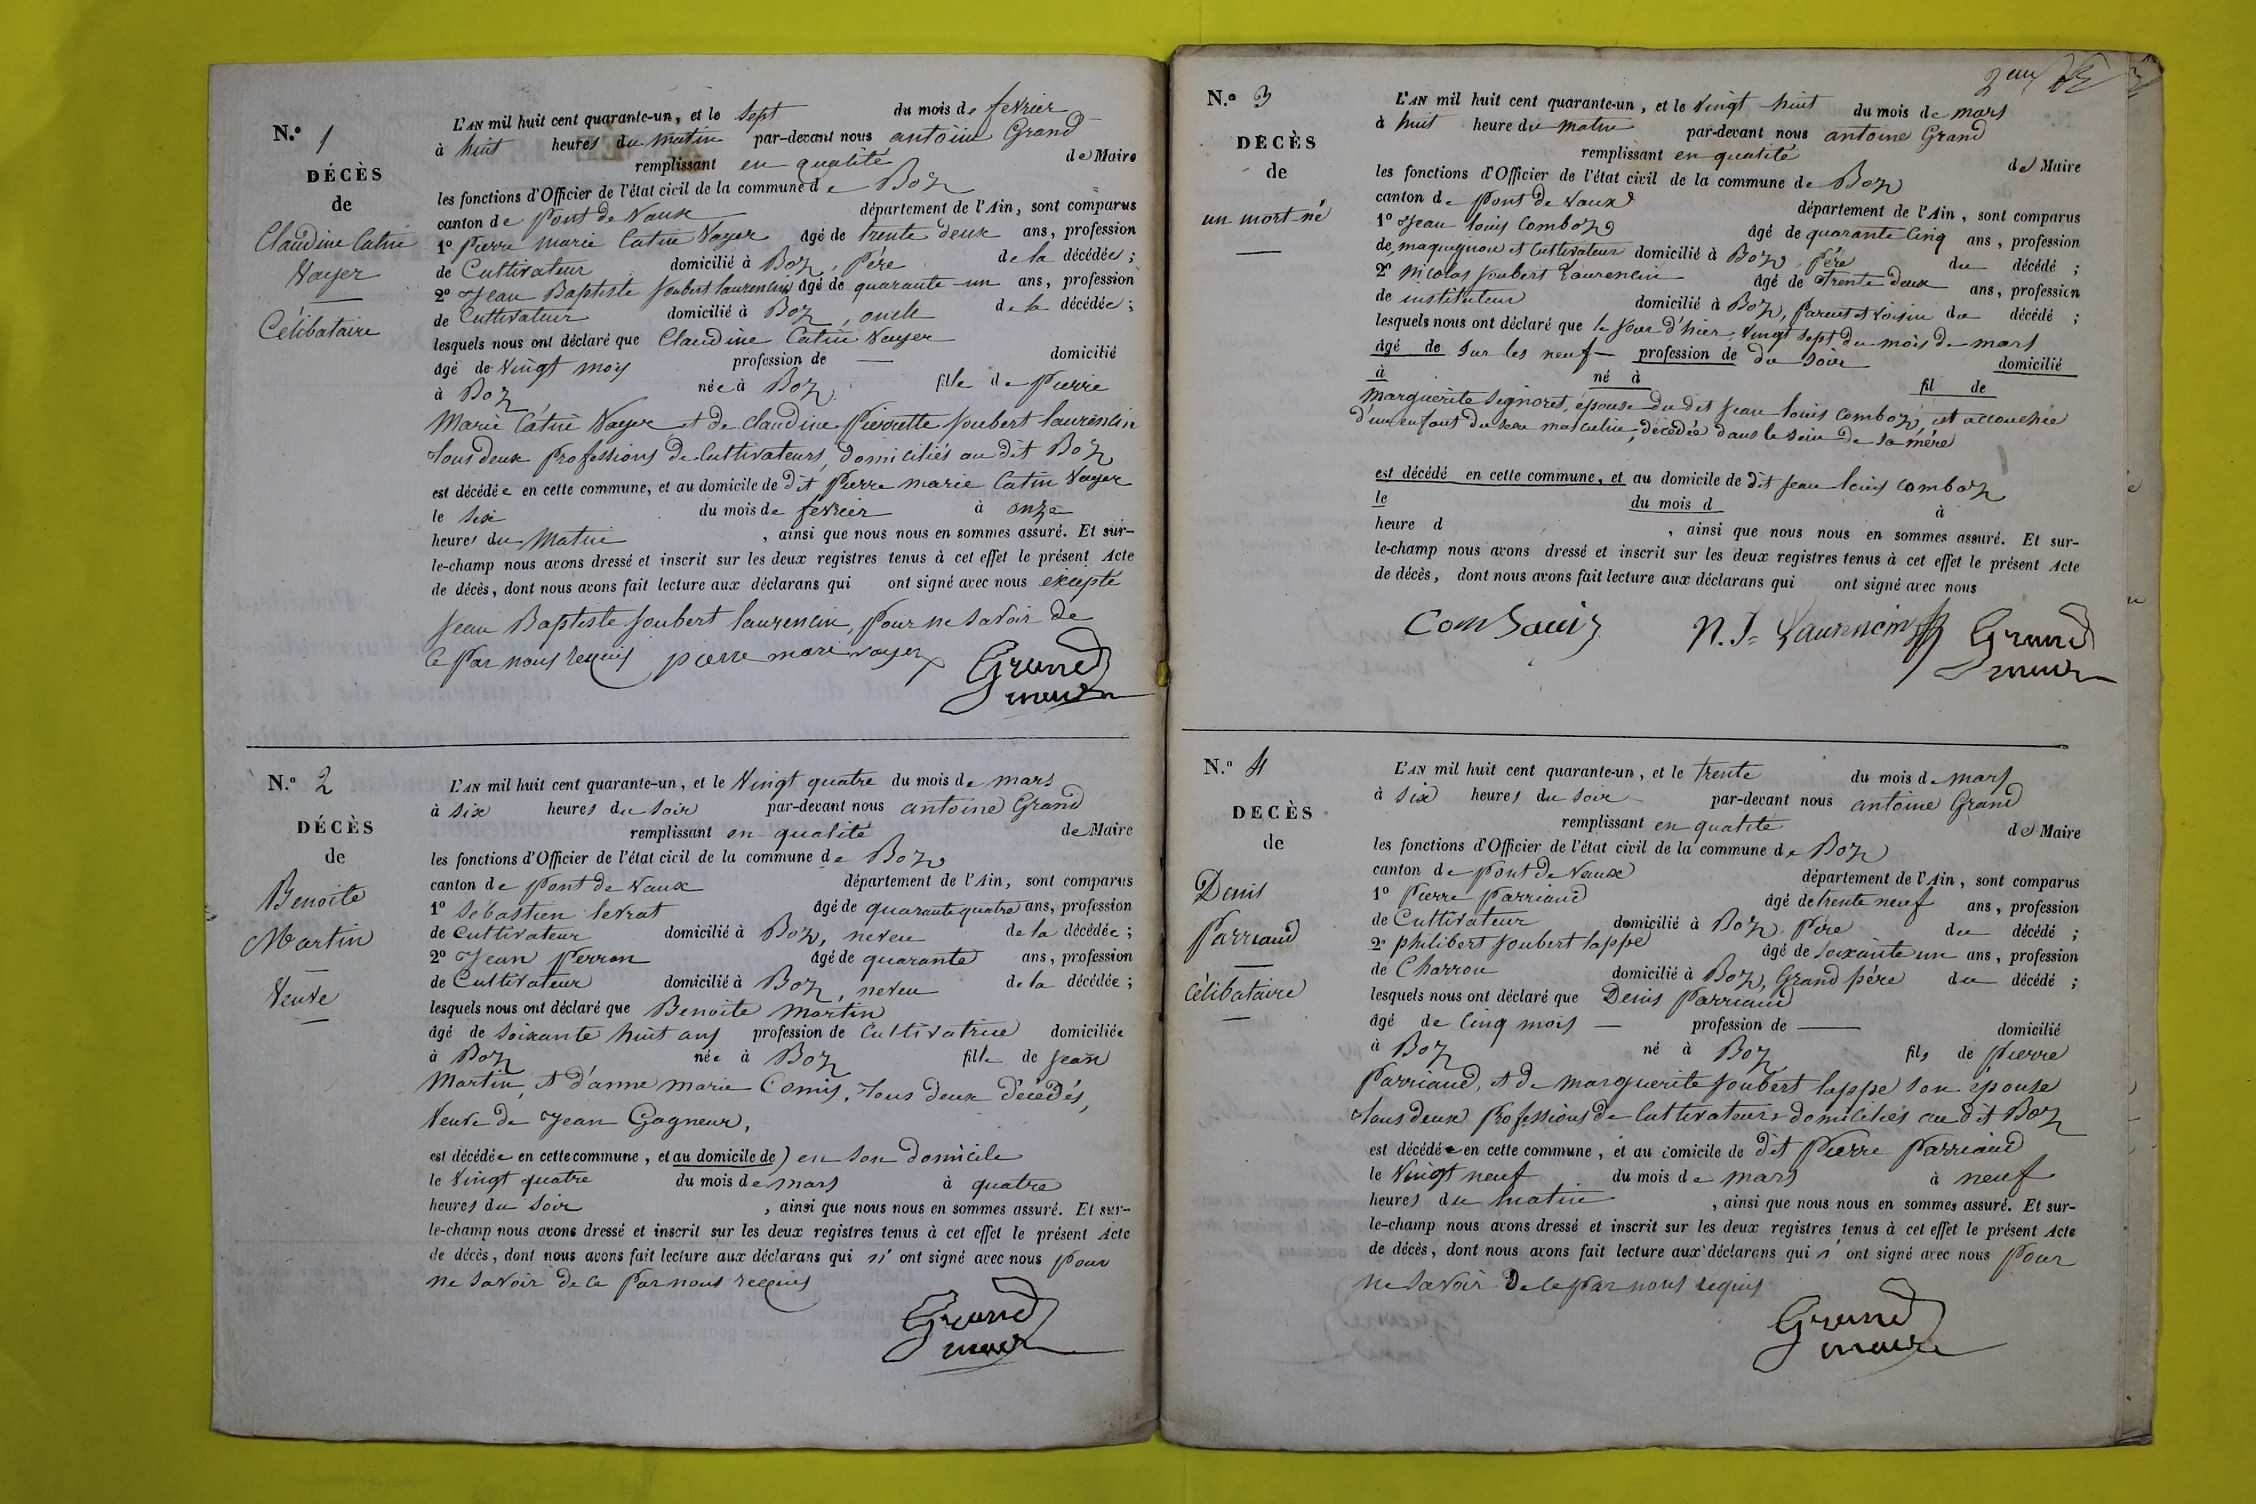 N.o 1
DÉCÈS
de
Claudine Catin
Vayer
Célibataire
L'AN mil huit cent quarante-un, et le sept du mois de fevrier
à huit heures du matin par-devant nous antoine Grand
remplissant en qualité de Maire
les fonctions d'Officier de l'état civil de la commune de Boz
canton de Pont de Vaux département de l'Ain, sont comparus
1o Pierre Marie Catin Vayer âgé de trente deux ans, profession
de Cultivateur domicilié à Boz, Père de la décédée;
2o Jean Baptiste Joubert laurencin âgé de quarante-un ans, profession
de Cultivateur domicilié à Boz, oncle de la décédée;
lesquels nous ont déclaré que Claudine Catin Vayer
âgé de Vingt mois profession de — domicilié
à Boz née à Boz, fille de Pierre
Marie Catin Vayer et de Claudine Pierrette Joubert laurencin
tous deux Professions de Cultivateurs, domiciliés au dit Boz
est décédée en cette commune, et au domicile de dit Pierre Marie Catin Vayer
le Six du mois de fevrier à onze
heures du Matin, ainsi que nous nous en sommes assuré. Et sur-
le-champ nous avons dressé et inscrit sur les deux registres tenus à cet effet le présent Acte
de décès, dont nous avons fait lecture aux déclarans qui ont signé avec nous excepté
Jean Baptiste Joubert laurencin, Pour ne Savoir de
ce Par nous requis pierre marie vayer Grand
maire
N.o 2
DÉCÈS
de
Benoite
Martin
Veuve
L'AN mil huit cent quarante-un, et le Vingt quatre du mois de mars
à six heures du soir par-devant nous antoine Grand
remplissant en qualité de Maire
les fonctions d'Officier de l'état civil de la commune de Boz
canton de Pont de Vaux département de l'Ain, sont comparus
1o Sébastien levrat âgé de quarante quatre ans, profession
de Cultivateur domicilié à Boz, neveu de la décédée;
2o Jean Perron âgé de quarante ans, profession
de Cultivateur domicilié à Boz, neveu de la décédée;
lesquels nous ont déclaré que Benoite Martin
âgé de soixante huit ans profession de Cultivatrice domiciliée
à Boz née à Boz fille de Jean
Martin, et d'anne marie Comis, tous deux décédés,
Veuve de Jean Gagneur,
est décédée en cette commune, et au domicile de) en son domicile
le Vingt quatre du mois de mars à quatre
heures du Soir, ainsi que nous nous en sommes assuré. Et sur-
le-champ nous avons dressé et inscrit sur les deux registres tenus à cet effet le présent Acte
de décès, dont nous avons fait lecture aux déclarans qui n' ont signé avec nous pour
ne Savoir de ce Par nous requis
Grand
maire
2eme
N.o 3
DÉCÈS
de
un mort-né
L'AN mil huit cent quarante-un, et le Vingt-huit du mois de mars
à huit heure du matin par-devant nous antoine Grand
remplissant en qualité de Maire
les fonctions d'Officier de l'état civil de la commune de Boz
canton de Pont de Vaux département de l'Ain, sont comparus
1o Jean louis Comboz âgé de quarante Cinq ans, profession
de maquignon et Cultivateur domicilié à Boz, père du décédé;
2o Nicolas Joubert Laurencin âgé de Trente deux ans, profession
de instituteur domicilié à Boz, Parent et voisin du décédé;
lesquels nous ont déclaré que le jour d'hier, Vingt sept du mois de mars
âgé de sur les neuf — profession de du soir domicilié
à né à fil de
Marguerite Signoret, épouse du dit Jean louis Comboz, est accouchée
d'un enfant du sexe masculin, décédée dans le sein de sa mère
est décédé en cette commune, et au domicile de dit Jean louis Comboz
le du mois d à
heure d , ainsi que nous nous en sommes assuré. Et sur-
le-champ nous avons dressé et inscrit sur les deux registres tenus à cet effet le présent Acte
de décès, dont nous avons fait lecture aux déclarans qui ont signé avec nous
N. J. Laurencin Grand
maire
N.o 4
DECÈS
de
Denis
Parriaud
Célibataire
L'AN mil huit cent quarante-un, et le trente du mois de mars
à six heures du soir par-devant nous antoine Grand
remplissant en qualité de Maire
les fonctions d'Officier de l'état civil de la commune de Boz
canton de Pont de Vaux département de l'Ain, sont comparus
1o Pierre Parriaud âgé de trente neuf ans, profession
de Cultivateur domicilié à Boz, Père du décédé;
2o philibert Joubert lappe âgé de soixante un ans, profession
de Charron domicilié à Boz, Grand père du décédé;
lesquels nous ont déclaré que Denis Parriaud
âgé de Cinq mois — profession de — domicilié
à Boz né à Boz fils de Pierre
Parriaud, et de Marguerite Joubert lappe son épouse
tous deux Professions de Cultivateurs domiciliés au dit Boz
est décédée en cette commune, et au domicile de dit Pierre Parriaud
le Vingt neuf du mois de mars à neuf
heures du Matin, ainsi que nous nous en sommes assuré. Et sur-
le-champ nous avons dressé et inscrit sur les deux registres tenus à cet effet le présent Acte
de décès, dont nous avons fait lecture aux déclarans qui n' ont signé avec nous Pour
ne Savoir de ce Par nous requis
Grand
maire